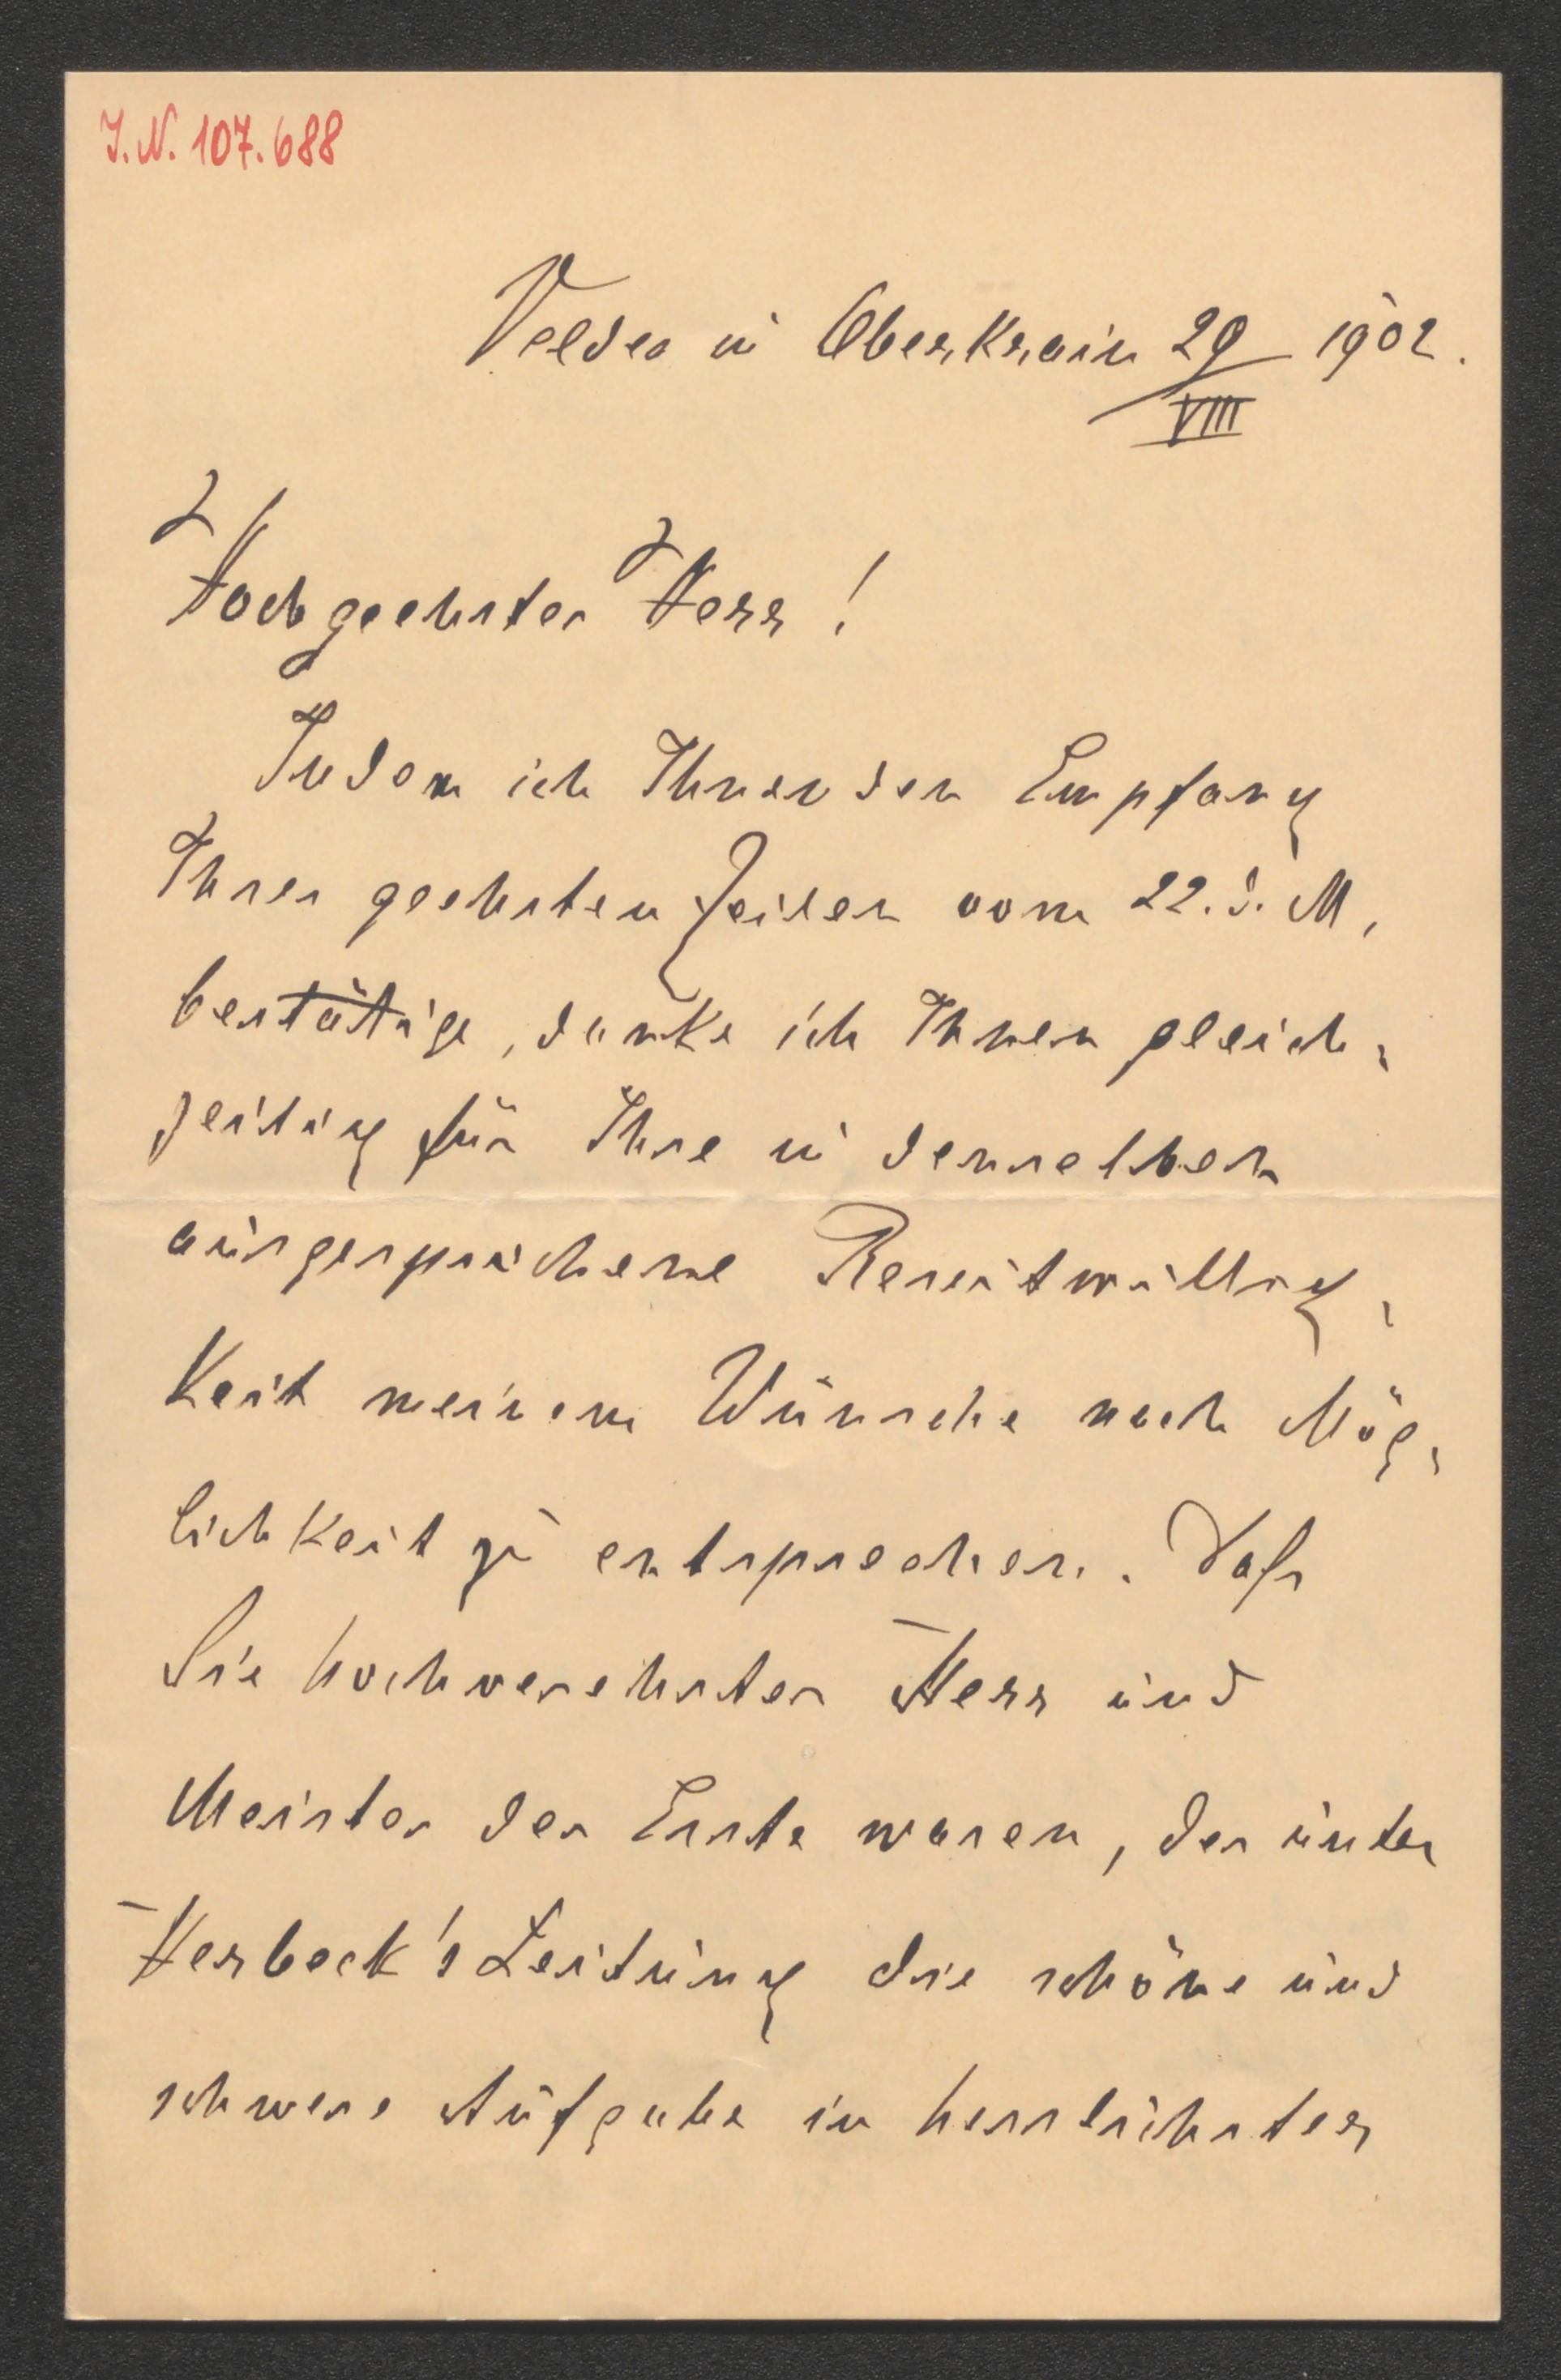 I. N. 107.688
Veldes in Oberkrain 29/VIII 1902.
Hochgeehrter Herr!
Indem ich Ihnen den Empfang
Ihrer geehrten Zeilen vom 22. d. M,
bestätige, danke ich Ihnen gleich-
zeitig für Ihre in denselben
ausgesprochene Bereitwillig-
keit meinem Wunsche nach Mög-
lichkeit zu entsprechen. Dass
Sie hochverehrter Herr und
Meister der Erste waren, der unter
Herbeck's Leitung die schöne und
schwere Aufgabe in herrlichster